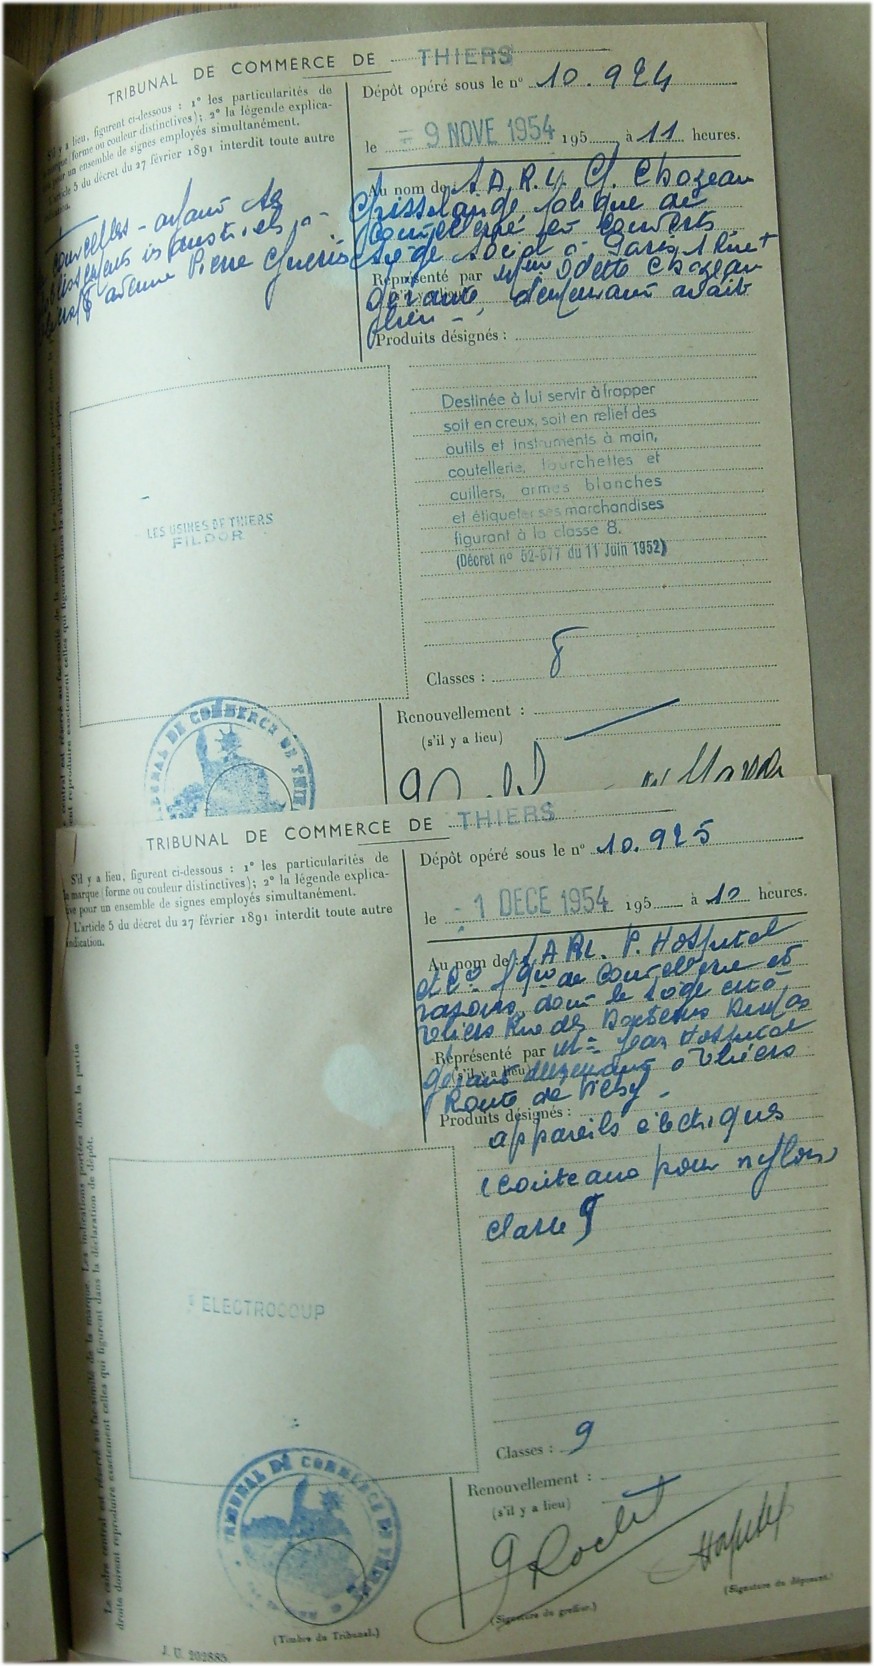 TRIBUNAL DE COMMERCE DE THIERS
il y a lieu, figurent ci-dessous : 1° les particularités de
marque (forme ou couleur distinctives); 2° la légende explica-
pour un ensemble de signes employés simultanément.
L'article 5 du décret du 27 février 1891 interdit toute autre
indication.
Courcelles - ayant
avenue Pierre Guérin
Dépôt opéré sous le n° 10.924
le - 9 NOVE 1954 195 à 11 heures.
Au nom de : S.A.R.L. Chazeau
de
couverts
siège social à Paris 1 Rue
Représenté par Mme Odette Chazeau
(s'il y a lieu)
Gérante, demeurant
Produits désignés :
Destinée à lui servir à frapper
soit en creux, soit en relief des
outils et instruments à main,
coutellerie, fourchettes et
cuillers, armes blanches
et étiqueter ses marchandises
figurant à la classe 8.
(Décret n° 52-677 du 11 Juin 1952)
LES USINES DE THIERS
FILDOR
Classes : 8
Renouvellement :
(s'il y a lieu)
TRIBUNAL DE COMMERCE DE THIERS
TRIBUNAL DE COMMERCE DE THIERS
S'il y a lieu, figurent ci-dessous : 1° les particularités de
la marque (forme ou couleur distinctives); 2° la légende explica-
tive pour un ensemble de signes employés simultanément.
L'article 5 du décret du 27 février 1891 interdit toute autre
indication.
Dépôt opéré sous le n° 10.925
le - 1 DECE 1954 195 à 10 heures.
Au nom de : SARL. P. Hospital
et Cie de Coutellerie et
rasoirs, dont le siège est à
Thiers Rue des Docteurs Dumas
Représenté par Mr Jean Hospital
(s'il y a lieu)
gérant demeurant à Thiers
Route de Vichy.
Produits désignés :
appareils électriques
(couteaux pour nylon)
classe 9
ELECTROCOUP
Classes : 9
Renouvellement :
(s'il y a lieu)
G Rochet
Hospital
(Signature du greffier.)
(Signature du déposant.)
TRIBUNAL DE COMMERCE DE THIERS
(Timbre du Tribunal.)
J. U. 202885.
Le cadre central est réservé au fac-similé de la marque. Les indications portées dans la partie
droite doivent reproduire exactement celles qui figurent dans la déclaration de dépôt.